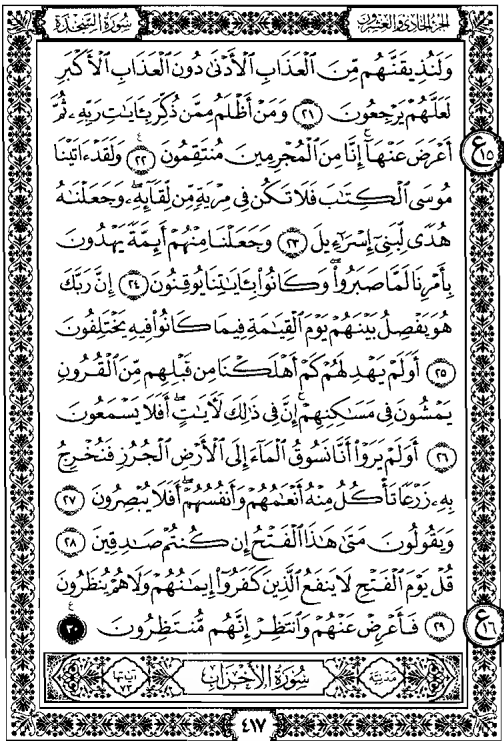 الجزء الحادي والعشرون
سورة السجدة
وَلَنُذِيقَنَّهُم مِّنَ ٱلْعَذَابِ ٱلْأَدْنَىٰ دُونَ ٱلْعَذَابِ ٱلْأَكْبَرِ
لَعَلَّهُمْ يَرْجِعُونَ ٢١ وَمَنْ أَظْلَمُ مِمَّن ذُكِّرَ بِـَٔايَٰتِ رَبِّهِۦ ثُمَّ
أَعْرَضَ عَنْهَآ ۚ إِنَّا مِنَ ٱلْمُجْرِمِينَ مُنتَقِمُونَ ٢٢ وَلَقَدْ ءَاتَيْنَا
ع ١٥
مُوسَى ٱلْكِتَٰبَ فَلَا تَكُن فِى مِرْيَةٍ مِّن لِّقَآئِهِۦ ۖ وَجَعَلْنَٰهُ
هُدًى لِّبَنِىٓ إِسْرَٰٓءِيلَ ٢٣ وَجَعَلْنَا مِنْهُمْ أَئِمَّةً يَهْدُونَ
بِأَمْرِنَا لَمَّا صَبَرُوا۟ ۖ وَكَانُوا۟ بِـَٔايَٰتِنَا يُوقِنُونَ ٢٤ إِنَّ رَبَّكَ
هُوَ يَفْصِلُ بَيْنَهُمْ يَوْمَ ٱلْقِيَٰمَةِ فِيمَا كَانُوا۟ فِيهِ يَخْتَلِفُونَ
٢٥ أَوَلَمْ يَهْدِ لَهُمْ كَمْ أَهْلَكْنَا مِن قَبْلِهِم مِّنَ ٱلْقُرُونِ
يَمْشُونَ فِى مَسَٰكِنِهِمْ ۚ إِنَّ فِى ذَٰلِكَ لَـَٔايَٰتٍ ۖ أَفَلَا يَسْمَعُونَ
٢٦ أَوَلَمْ يَرَوْا۟ أَنَّا نَسُوقُ ٱلْمَآءَ إِلَى ٱلْأَرْضِ ٱلْجُرُزِ فَنُخْرِجُ
بِهِۦ زَرْعًا تَأْكُلُ مِنْهُ أَنْعَٰمُهُمْ وَأَنفُسُهُمْ ۖ أَفَلَا يُبْصِرُونَ ٢٧
وَيَقُولُونَ مَتَىٰ هَٰذَا ٱلْفَتْحُ إِن كُنتُمْ صَٰدِقِينَ ٢٨
قُلْ يَوْمَ ٱلْفَتْحِ لَا يَنفَعُ ٱلَّذِينَ كَفَرُوٓا۟ إِيمَٰنُهُمْ وَلَا هُمْ يُنظَرُونَ
٢٩ فَأَعْرِضْ عَنْهُمْ وَٱنتَظِرْ إِنَّهُم مُّنتَظِرُونَ ٣٠
ع ١٦
مدنية
سورة الأحزاب
آياتها ٧٣
٤١٧